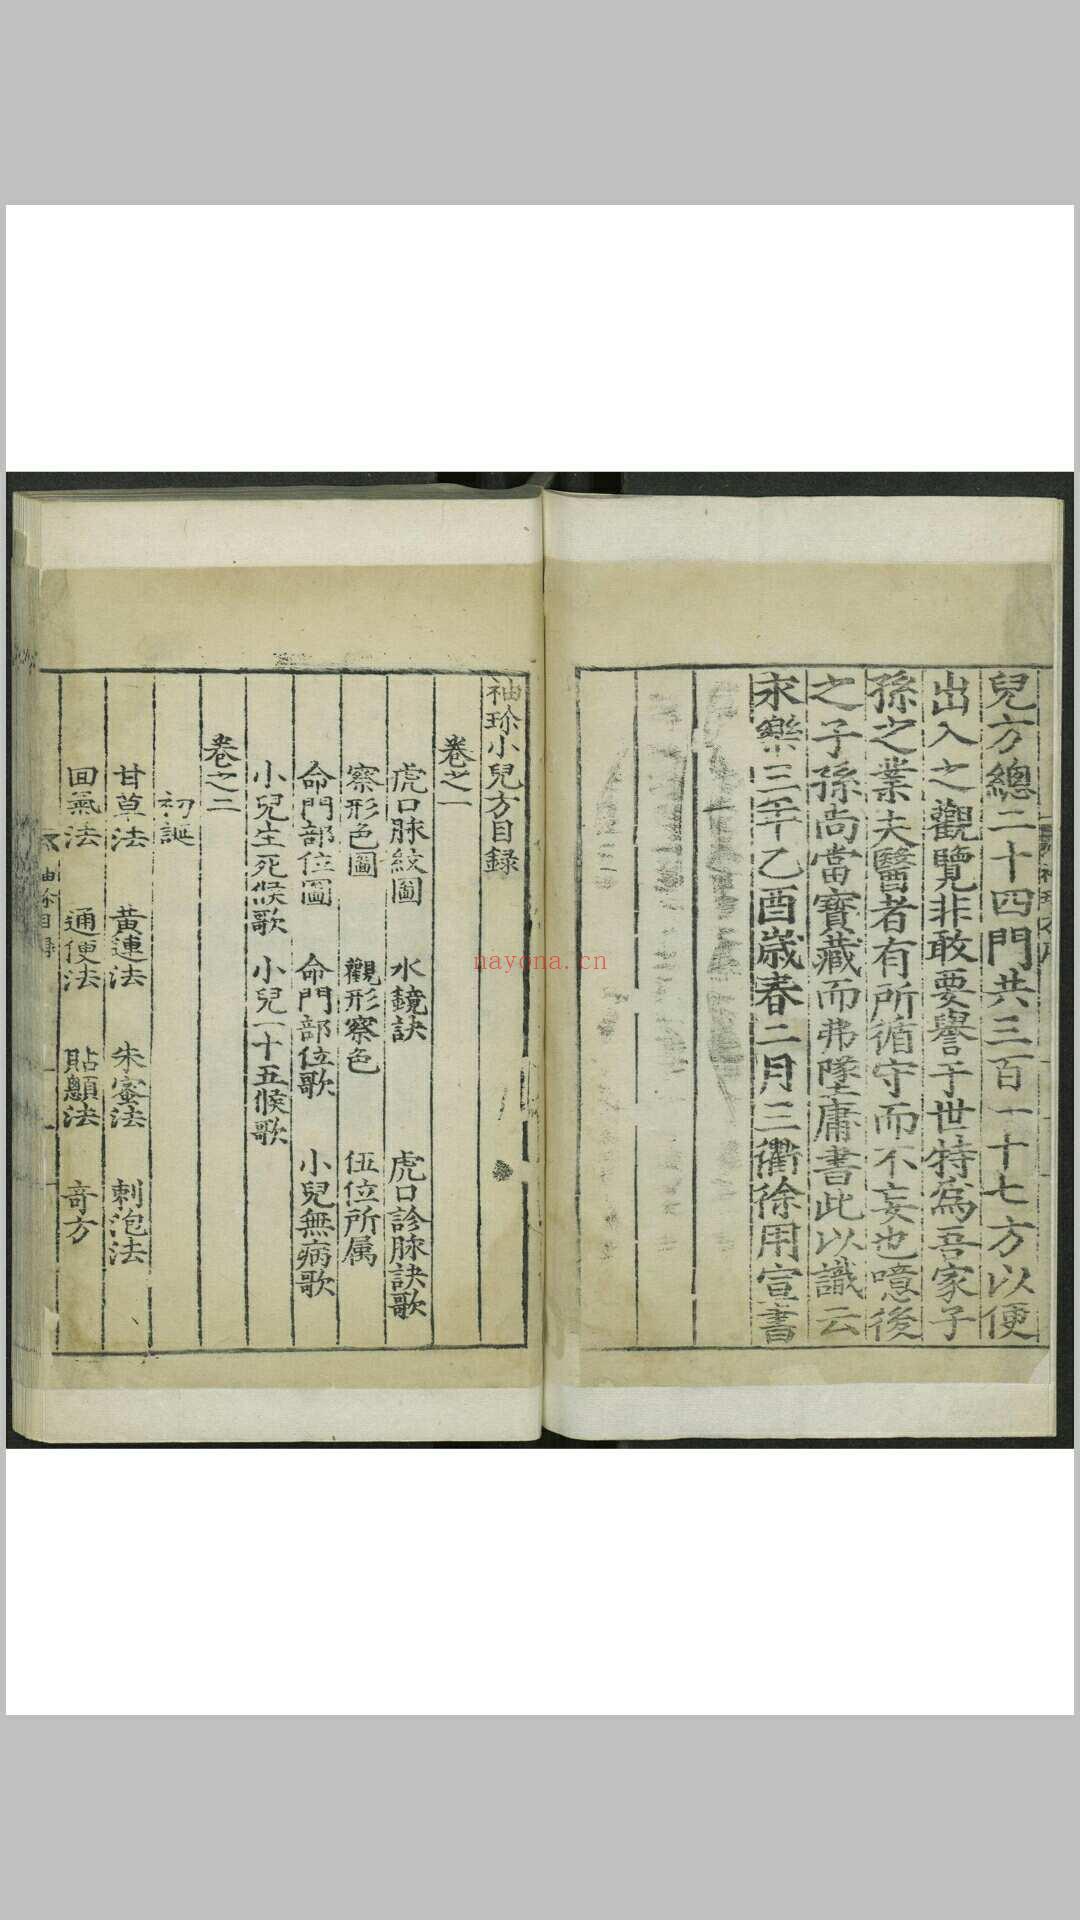 兒方總二十四門共三百一十七方以便
出入之觀覽非敢要譽于世特爲吾家子
孫之業夫醫者有所循守而不妄也噫後
之子孫尚當寳藏而弗墜庸書此以識云
永樂三年乙酉歲春二月三衢徐用宣書
袖珎小兒方目録
卷之一
虎口脉紋圖 水鏡訣 虎口診脉訣歌
察形色圖 觀形察色 伍位所属
命門部位圖 命門部位歌 小兒無病歌
小兒生死候歌 小兒一十五候歌
卷之二
初誕
甘草法 黄連法 朱蜜法 刺泡法
回氣法 通便法 貼顖法 竒方
nayona.cn